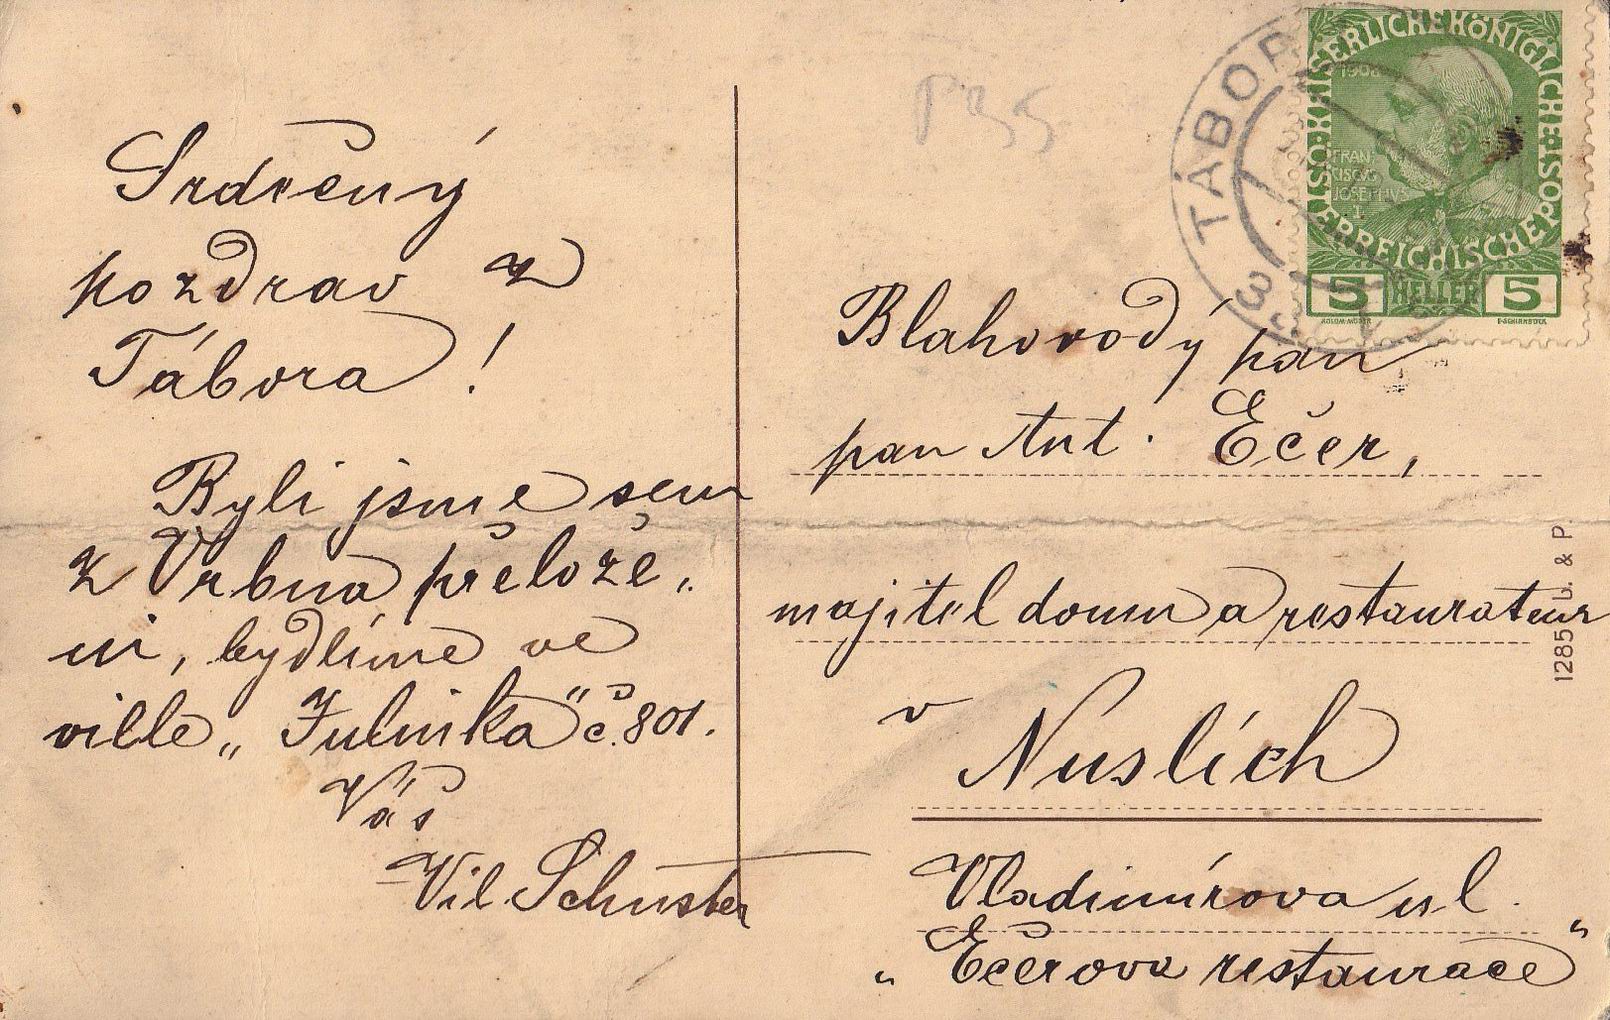 Srdečný
pozdrav z
Tábora !
Byli jsme sem
z Vrbna přelože„
ni, bydlíme ve
ville „Julinka“ č. 801.
Váš
Vil. Schuster
P35
TÁBOR
3
KAISERLICHE KÖNIGLICHE
ÖSTERREICHISCHE POST
1908
FRAN
CISCVS
JOSEPHVS
I
5 HELLER 5
KOLOM·MOSER
F·SCHIRNBÖCK
Blahorodý pan
pan Ant. Ečer,
majitel domu a restaurateur
v Nuslích
Vladimírova ul.
„Ečerova restaurace“
1285 U. & P.